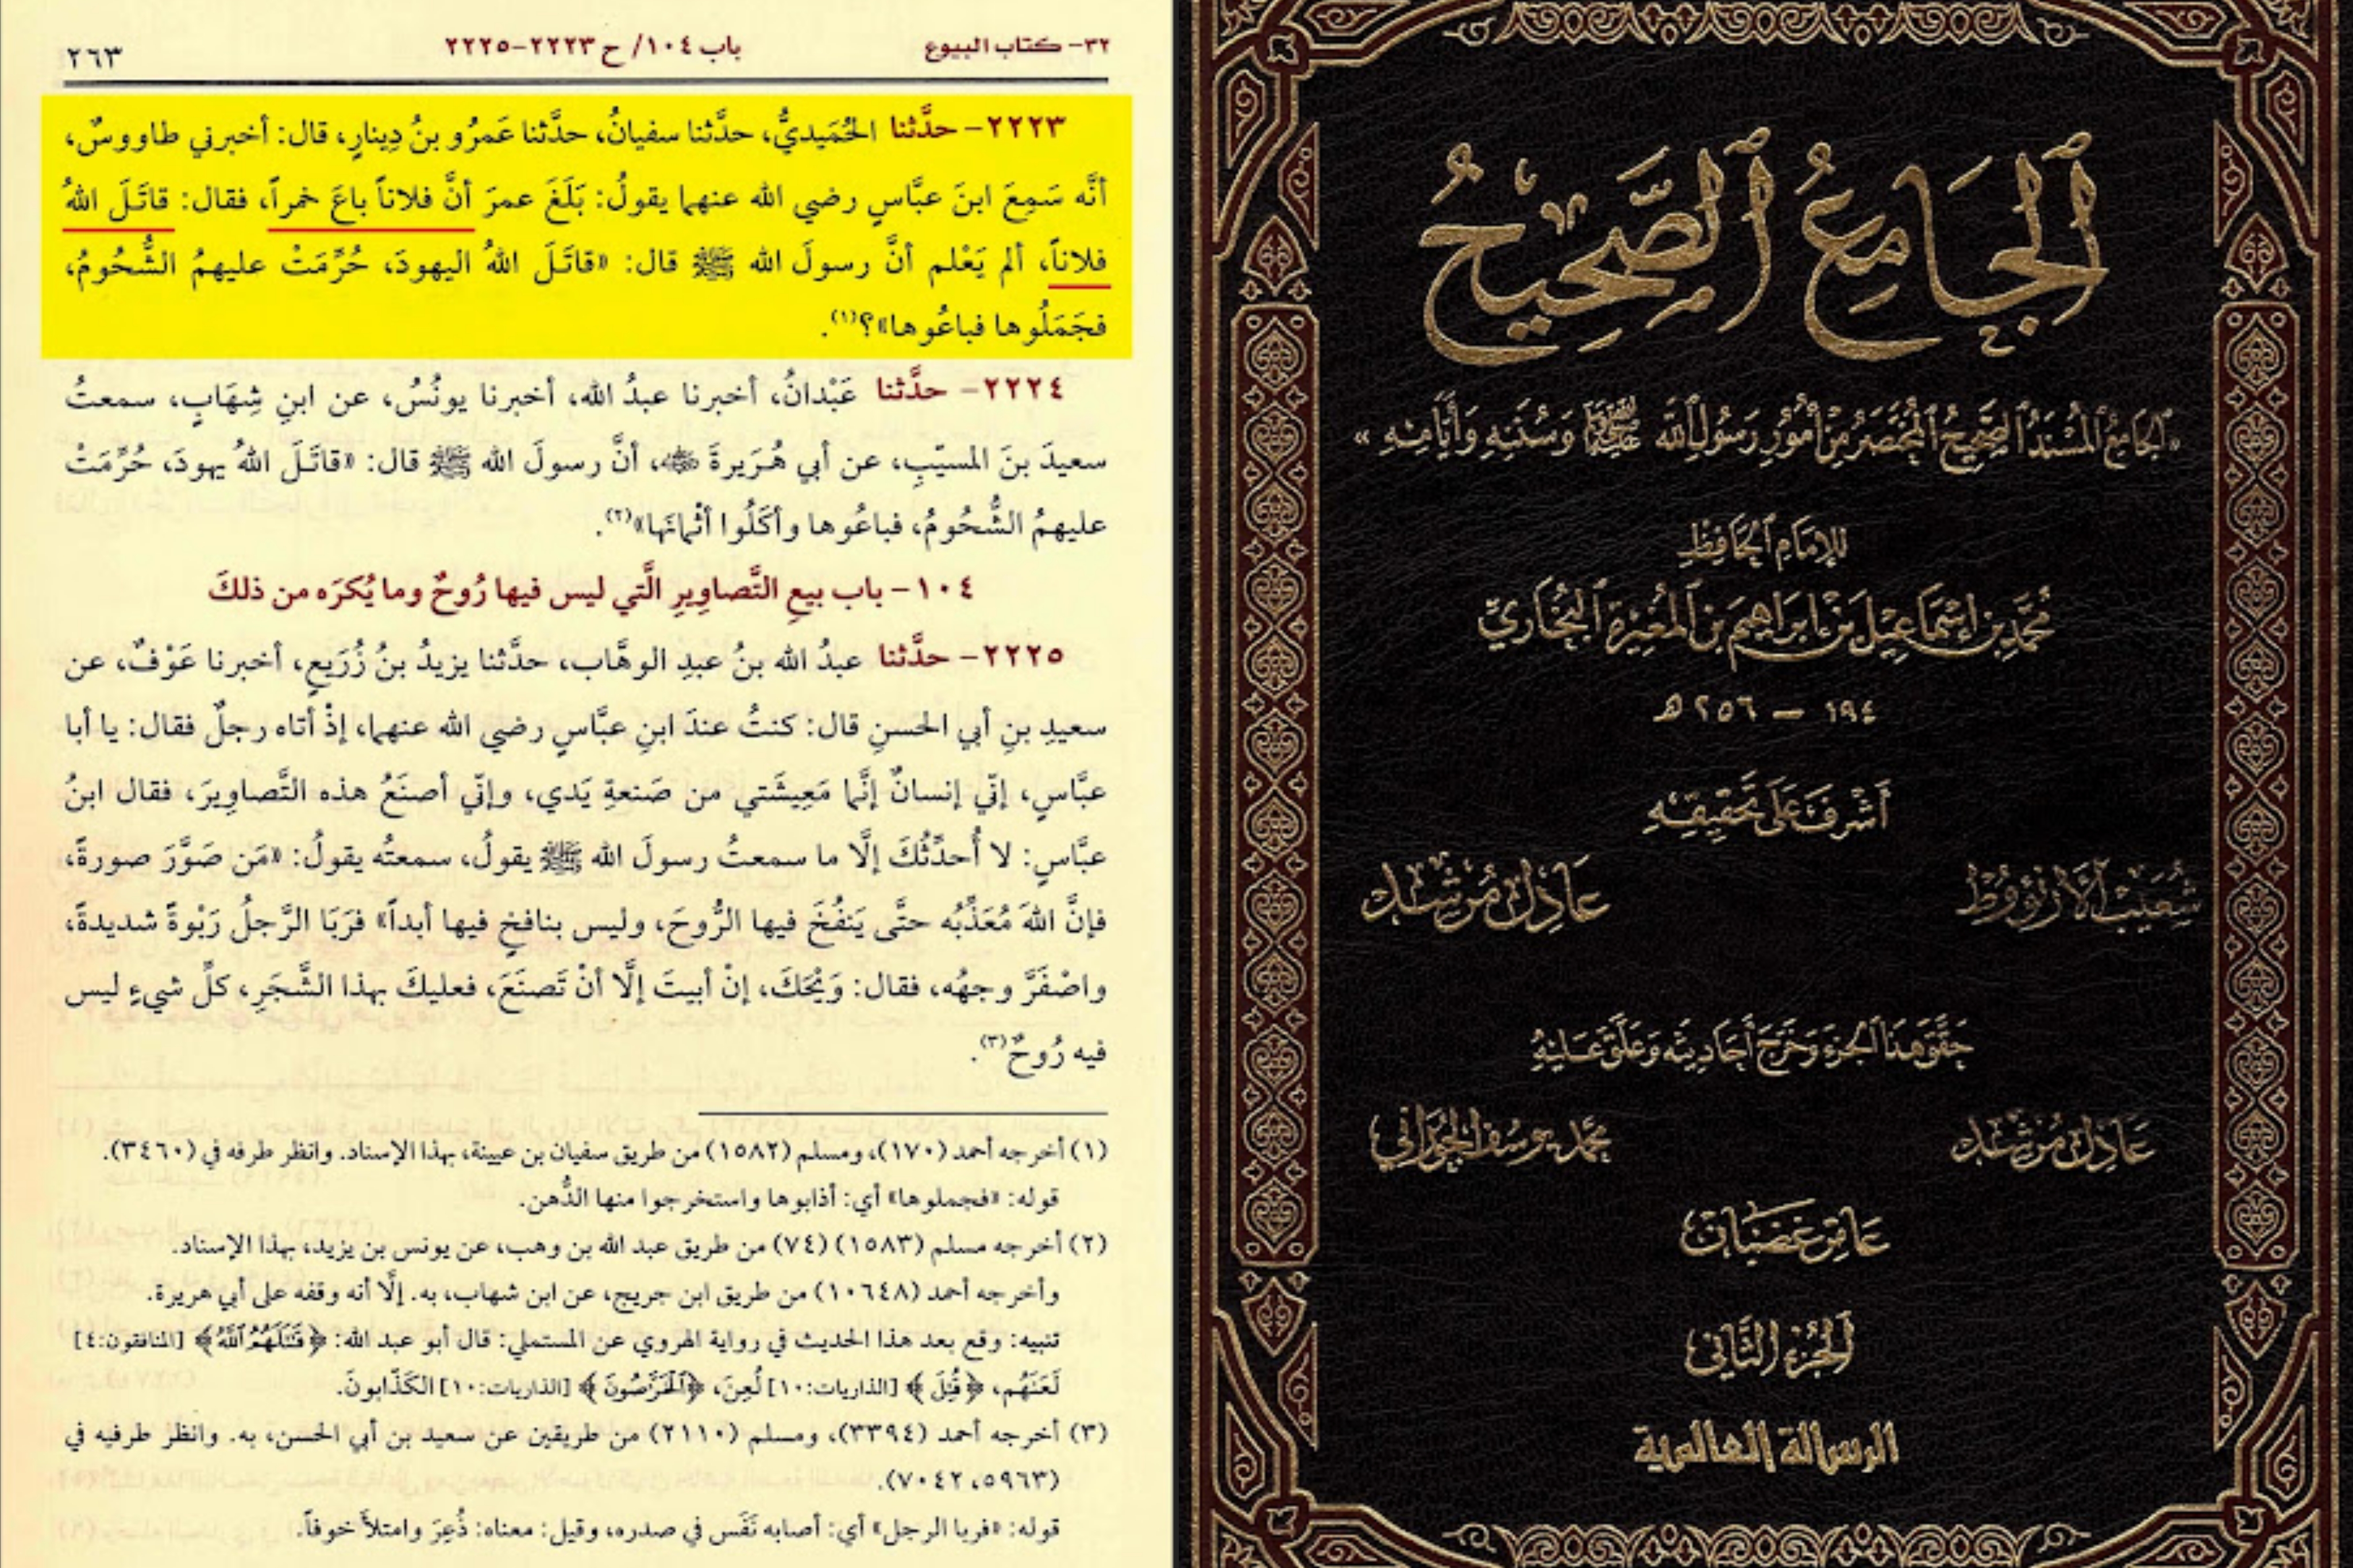 ٣٢- كتاب البيوع
باب ١٠٤/ ح ٢٢٢٣-٢٢٢٥
٢٦٣
٢٢٢٣- حدَّثنا الحُمَيديُّ، حدَّثنا سفيانُ، حدَّثنا عَمرُو بنُ دِينارٍ، قال: أخبرني طاووسٌ،
أنَّه سَمِعَ ابنَ عبَّاسٍ رضي الله عنهما يقولُ: بَلَغَ عمرَ أنَّ فلاناً باعَ خمراً، فقال: قاتَلَ اللهُ
فلاناً، ألم يَعْلم أنَّ رسولَ الله ﷺ قال: «قاتَلَ اللهُ اليهودَ، حُرِّمَتْ عليهمُ الشُّحُومُ،
فجَمَلُوها فباعُوها»؟(١).
٢٢٢٤- حدَّثنا عَبْدانُ، أخبرنا عبدُ الله، أخبرنا يونُسُ، عن ابنِ شِهَابٍ، سمعتُ
سعيدَ بنَ المسيّبِ، عن أبي هُرَيرةَ ؓ، أنَّ رسولَ الله ﷺ قال: «قاتَلَ اللهُ يهودَ، حُرِّمَتْ
عليهمُ الشُّحُومُ، فباعُوها وأكَلُوا أثْمانَها»(٢).
١٠٤- باب بيعِ التَّصاوِيرِ الَّتي ليس فيها رُوحٌ وما يُكرَه من ذلكَ
٢٢٢٥- حدَّثنا عبدُ الله بنُ عبدِ الوهَّاب، حدَّثنا يزيدُ بنُ زُرَيعٍ، أخبرنا عَوْفٌ، عن
سعيدِ بنِ أبي الحسنِ قال: كنتُ عندَ ابنِ عبَّاسٍ رضي الله عنهما، إذْ أتاه رجلٌ فقال: يا أبا
عبَّاسٍ، إنّي إنسانٌ إنَّما مَعِيشَتي من صَنعةِ يَدي، وإنّي أصنَعُ هذه التَّصاوِيرَ، فقال ابنُ
عبَّاسٍ: لا أُحدِّثُكَ إلَّا ما سمعتُ رسولَ الله ﷺ يقولُ، سمعتُه يقولُ: «مَن صَوَّرَ صورةً،
فإنَّ اللهَ مُعَذِّبُه حتَّى يَنفُخَ فيها الرُّوحَ، وليس بنافخٍ فيها أبداً» فرَبَا الرَّجلُ رَبْوةً شديدةً،
واصْفَرَّ وجهُه، فقال: وَيْحَكَ، إنْ أبيتَ إلَّا أنْ تَصنَعَ، فعليكَ بهذا الشَّجَرِ، كلِّ شيءٍ ليس
فيه رُوحٌ(٣).
(١) أخرجه أحمد (١٧٠)، ومسلم (١٥٨٢) من طريق سفيان بن عيينة، بهذا الإسناد. وانظر طرفه في (٣٤٦٠).
قوله: «فجملوها» أي: أذابوها واستخرجوا منها الدُّهن.
(٢) أخرجه مسلم (١٥٨٣) (٧٤) من طريق عبد الله بن وهب، عن يونس بن يزيد، بهذا الإسناد.
وأخرجه أحمد (١٠٦٤٨) من طريق ابن جريج، عن ابن شهاب، به. إلَّا أنه وقفه على أبي هريرة.
تنبيه: وقع بعد هذا الحديث في رواية الهروي عن المستملي: قال أبو عبد الله: ﴿قَٰتَلَهُمُ ٱللَّهُ﴾ [المنافقون:٤]
لَعَنَهُم، ﴿قُتِلَ﴾ [الذاريات:١٠] لُعِنَ، ﴿ٱلْخَرَّٰصُونَ﴾ [الذاريات:١٠] الكَذّابونَ.
(٣) أخرجه أحمد (٣٣٩٤)، ومسلم (٢١١٠) من طريقين عن سعيد بن أبي الحسن، به. وانظر طرفيه في
(٥٩٦٣، ٧٠٤٢).
قوله: «فربا الرجل» أي: أصابه نَفَس في صدره، وقيل: معناه: ذُعِرَ وامتلأ خوفاً.
ٱلْجَامِعُ ٱلصَّحِيحُ
«ٱلْجَامِعُ ٱلْمُسْنَدُ ٱلصَّحِيحُ ٱلْمُخْتَصَرُ مِنْ أُمُورِ رَسُولِ ٱللَّهِ ﷺ وَسُنَنِهِ وَأَيَّامِهِ»
لِلإِمَامِ ٱلْحَافِظِ
مُحَمَّدِ بْنِ إِسْمَاعِيلَ بْنِ إِبْرَاهِيمَ بْنِ ٱلْمُغِيرَةِ ٱلْبُخَارِيِّ
١٩٤ - ٢٥٦ هـ
أَشْرَفَ عَلَى تَحْقِيقِهِ
شُعَيْب ٱلْأَرْنَؤُوط
عَادِل مُرْشِد
حَقَّقَ هَذَا ٱلْجُزْءَ وَخَرَّجَ أَحَادِيثَهُ وَعَلَّقَ عَلَيْهِ
عَادِل مُرْشِد
محمد يوسف الحوراني
عَامِر غَضْبَان
ٱلْجُزْءُ ٱلثَّانِي
الرسالة العالمية